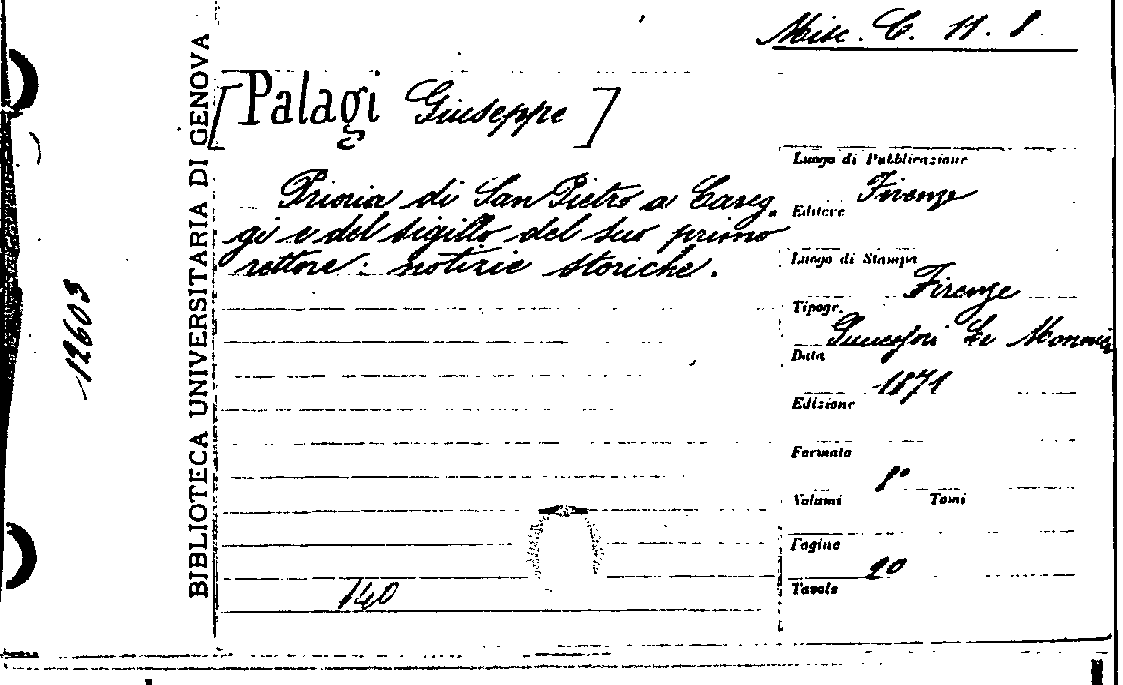 Misc. C. 11. 8
[Palagi Giuseppe]
Prioria di San Pietro a Careg-
gi e del sigillo del suo primo
rettore: notizie storiche.
140
Luogo di Pubblicazione
Firenze
Editore
Luogo di Stampa
Firenze
Tipogr.
Successori Le Monnier
Data
1871
Edizione
Formato
8°
Volumi Tomi
Pagine
20
Tavole
BIBLIOTECA UNIVERSITARIA DI GENOVA
12603